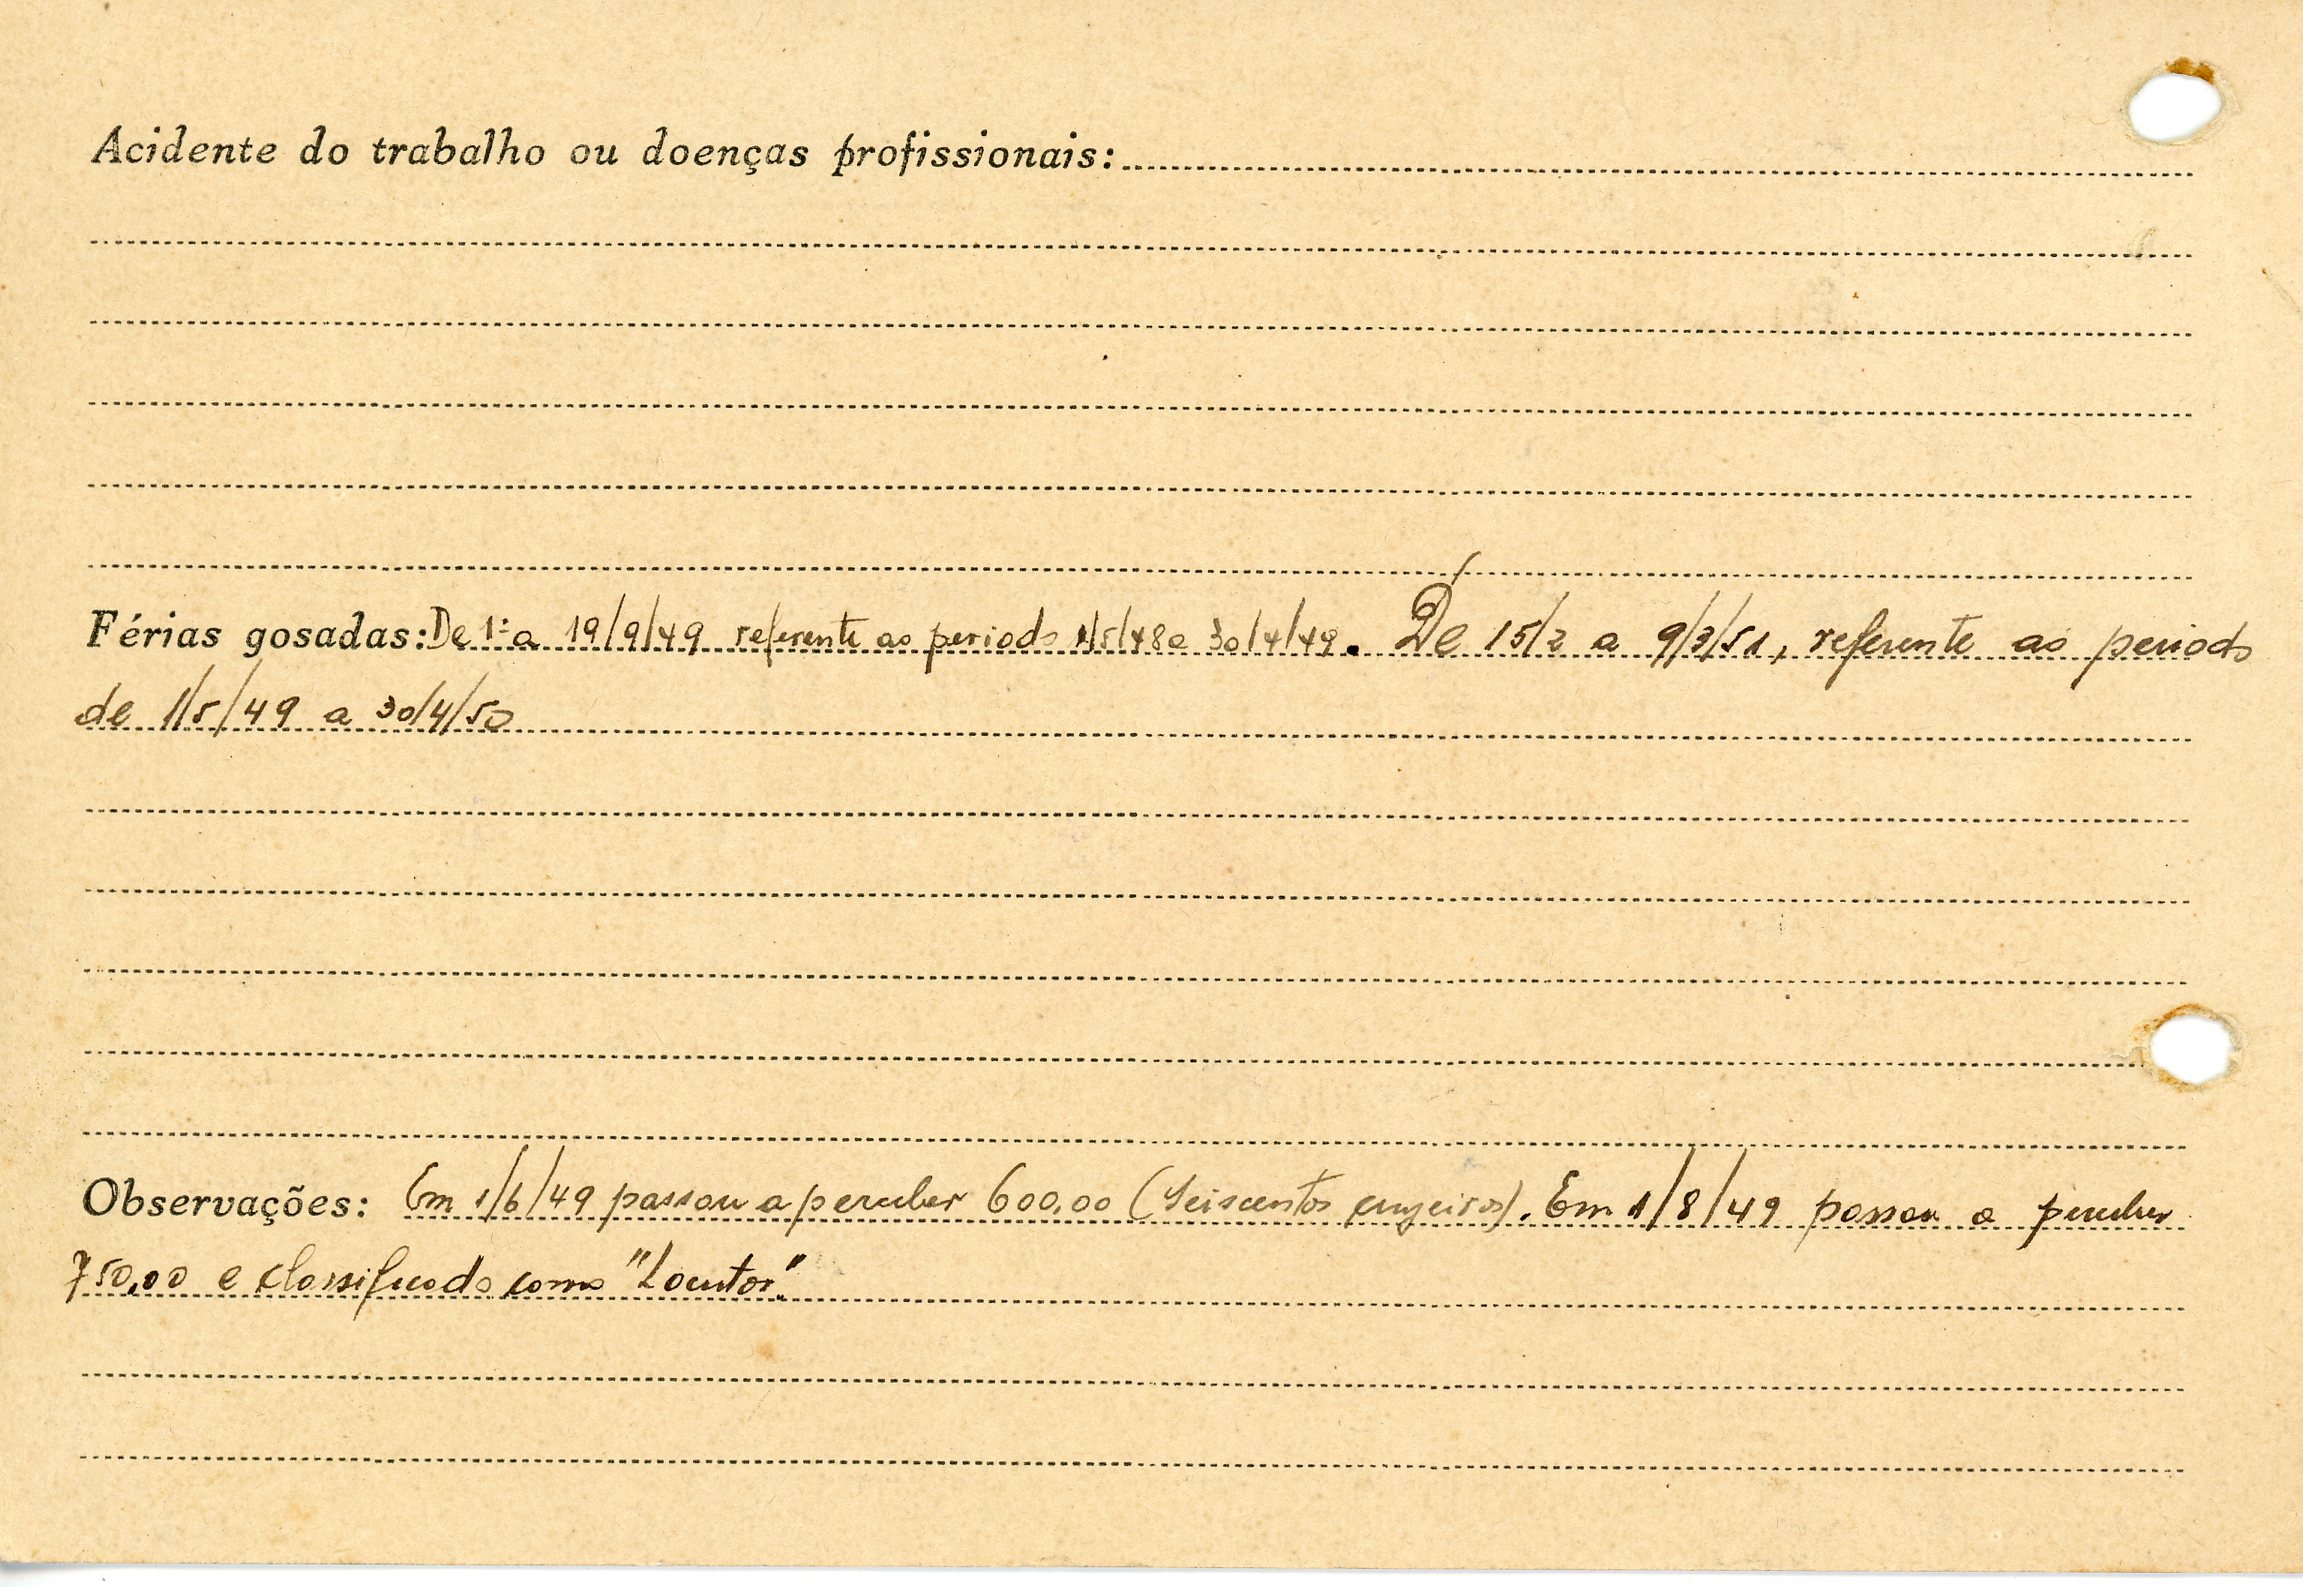 Acidente do trabalho ou doenças profissionais:
Férias gosadas: De 1º a 19/9/49 referente ao periodo 1/5/48 a 30/4/49. De 15/2 a 9/3/51, referente ao periodo
de 1/5/49 a 30/4/50
Observações: Em 1/6/49 passou a perceber 600,00 (Seiscentos cruzeiros). Em 1/8/49 passou a perceber
750,00 e classificado como "Locutor".